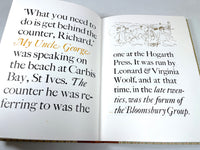 'What you need to
do is get behind the
counter, Richard.'
My Uncle George
was speaking on
the beach at Carbis
Bay, St Ives. The
counter he was re-
ferring to was the
one at the Hogarth
Press. It was run by
Leonard & Virginia
Woolf, and at that
time, in the late twen-
ties, was the forum of
the Bloomsbury Group.